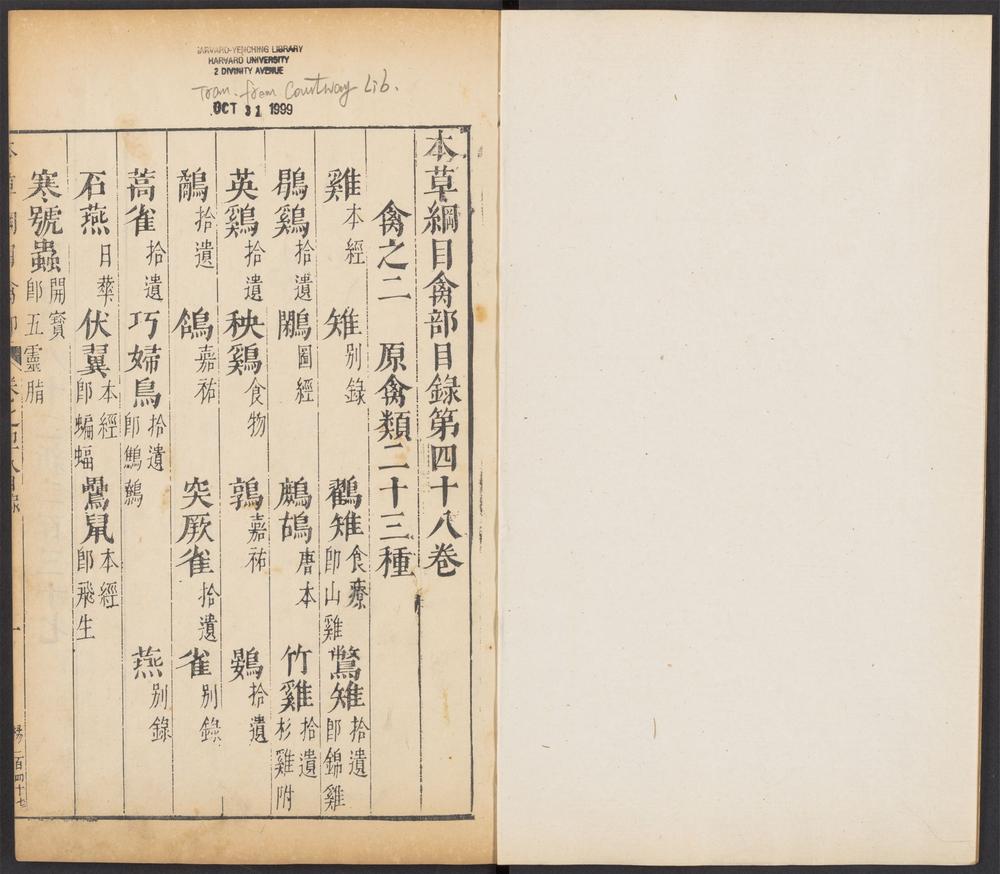 HARVARD-YENCHING LIBRARY
HARVARD UNIVERSITY
2 DIVINITY AVENUE
Tran. from Countway Lib.
OCT 31 1999
本草綱目禽部目錄第四十八卷
禽之二 原禽類二十三種
雞本經 雉別錄 鸐雉食療即山雞 鷩雉拾遺即錦雞
鶡雞拾遺 鷴圖經 鷓鴣唐本 竹雞拾遺杉雞附
英鷄拾遺 秧鷄食物 鶉嘉祐 鷃拾遺
鷸拾遺 鴿嘉祐 突厥雀拾遺 雀別錄
蒿雀拾遺 巧婦鳥拾遺即鷦鷯 燕別錄
石燕日華 伏翼本經即蝙蝠 鸓鼠本經即飛生
寒號蟲開寶即五靈脂